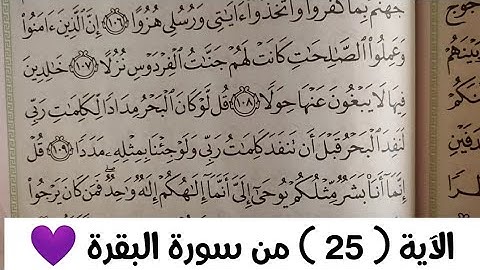 جَهَنَّمُ بِمَا كَفَرُوا۟ وَٱتَّخَذُوٓا۟ ءَايَٰتِى وَرُسُلِى هُزُوًا ١٠٦ إِنَّ ٱلَّذِينَ ءَامَنُوا۟
وَعَمِلُوا۟ ٱلصَّٰلِحَٰتِ كَانَتْ لَهُمْ جَنَّٰتُ ٱلْفِرْدَوْسِ نُزُلًا ١٠٧ خَٰلِدِينَ
فِيهَا لَا يَبْغُونَ عَنْهَا حِوَلًا ١٠٨ قُل لَّوْ كَانَ ٱلْبَحْرُ مِدَادًا لِّكَلِمَٰتِ رَبِّى
لَنَفِدَ ٱلْبَحْرُ قَبْلَ أَن تَنفَدَ كَلِمَٰتُ رَبِّى وَلَوْ جِئْنَا بِمِثْلِهِۦ مَدَدًا ١٠٩ قُلْ
إِنَّمَآ أَنَا۠ بَشَرٌ مِّثْلُكُمْ يُوحَىٰٓ إِلَىَّ أَنَّمَآ إِلَٰهُكُمْ إِلَٰهٌ وَٰحِدٌ ۖ فَمَن كَانَ يَرْجُوا۟
الآية ( 25 ) من سورة البقرة 💜